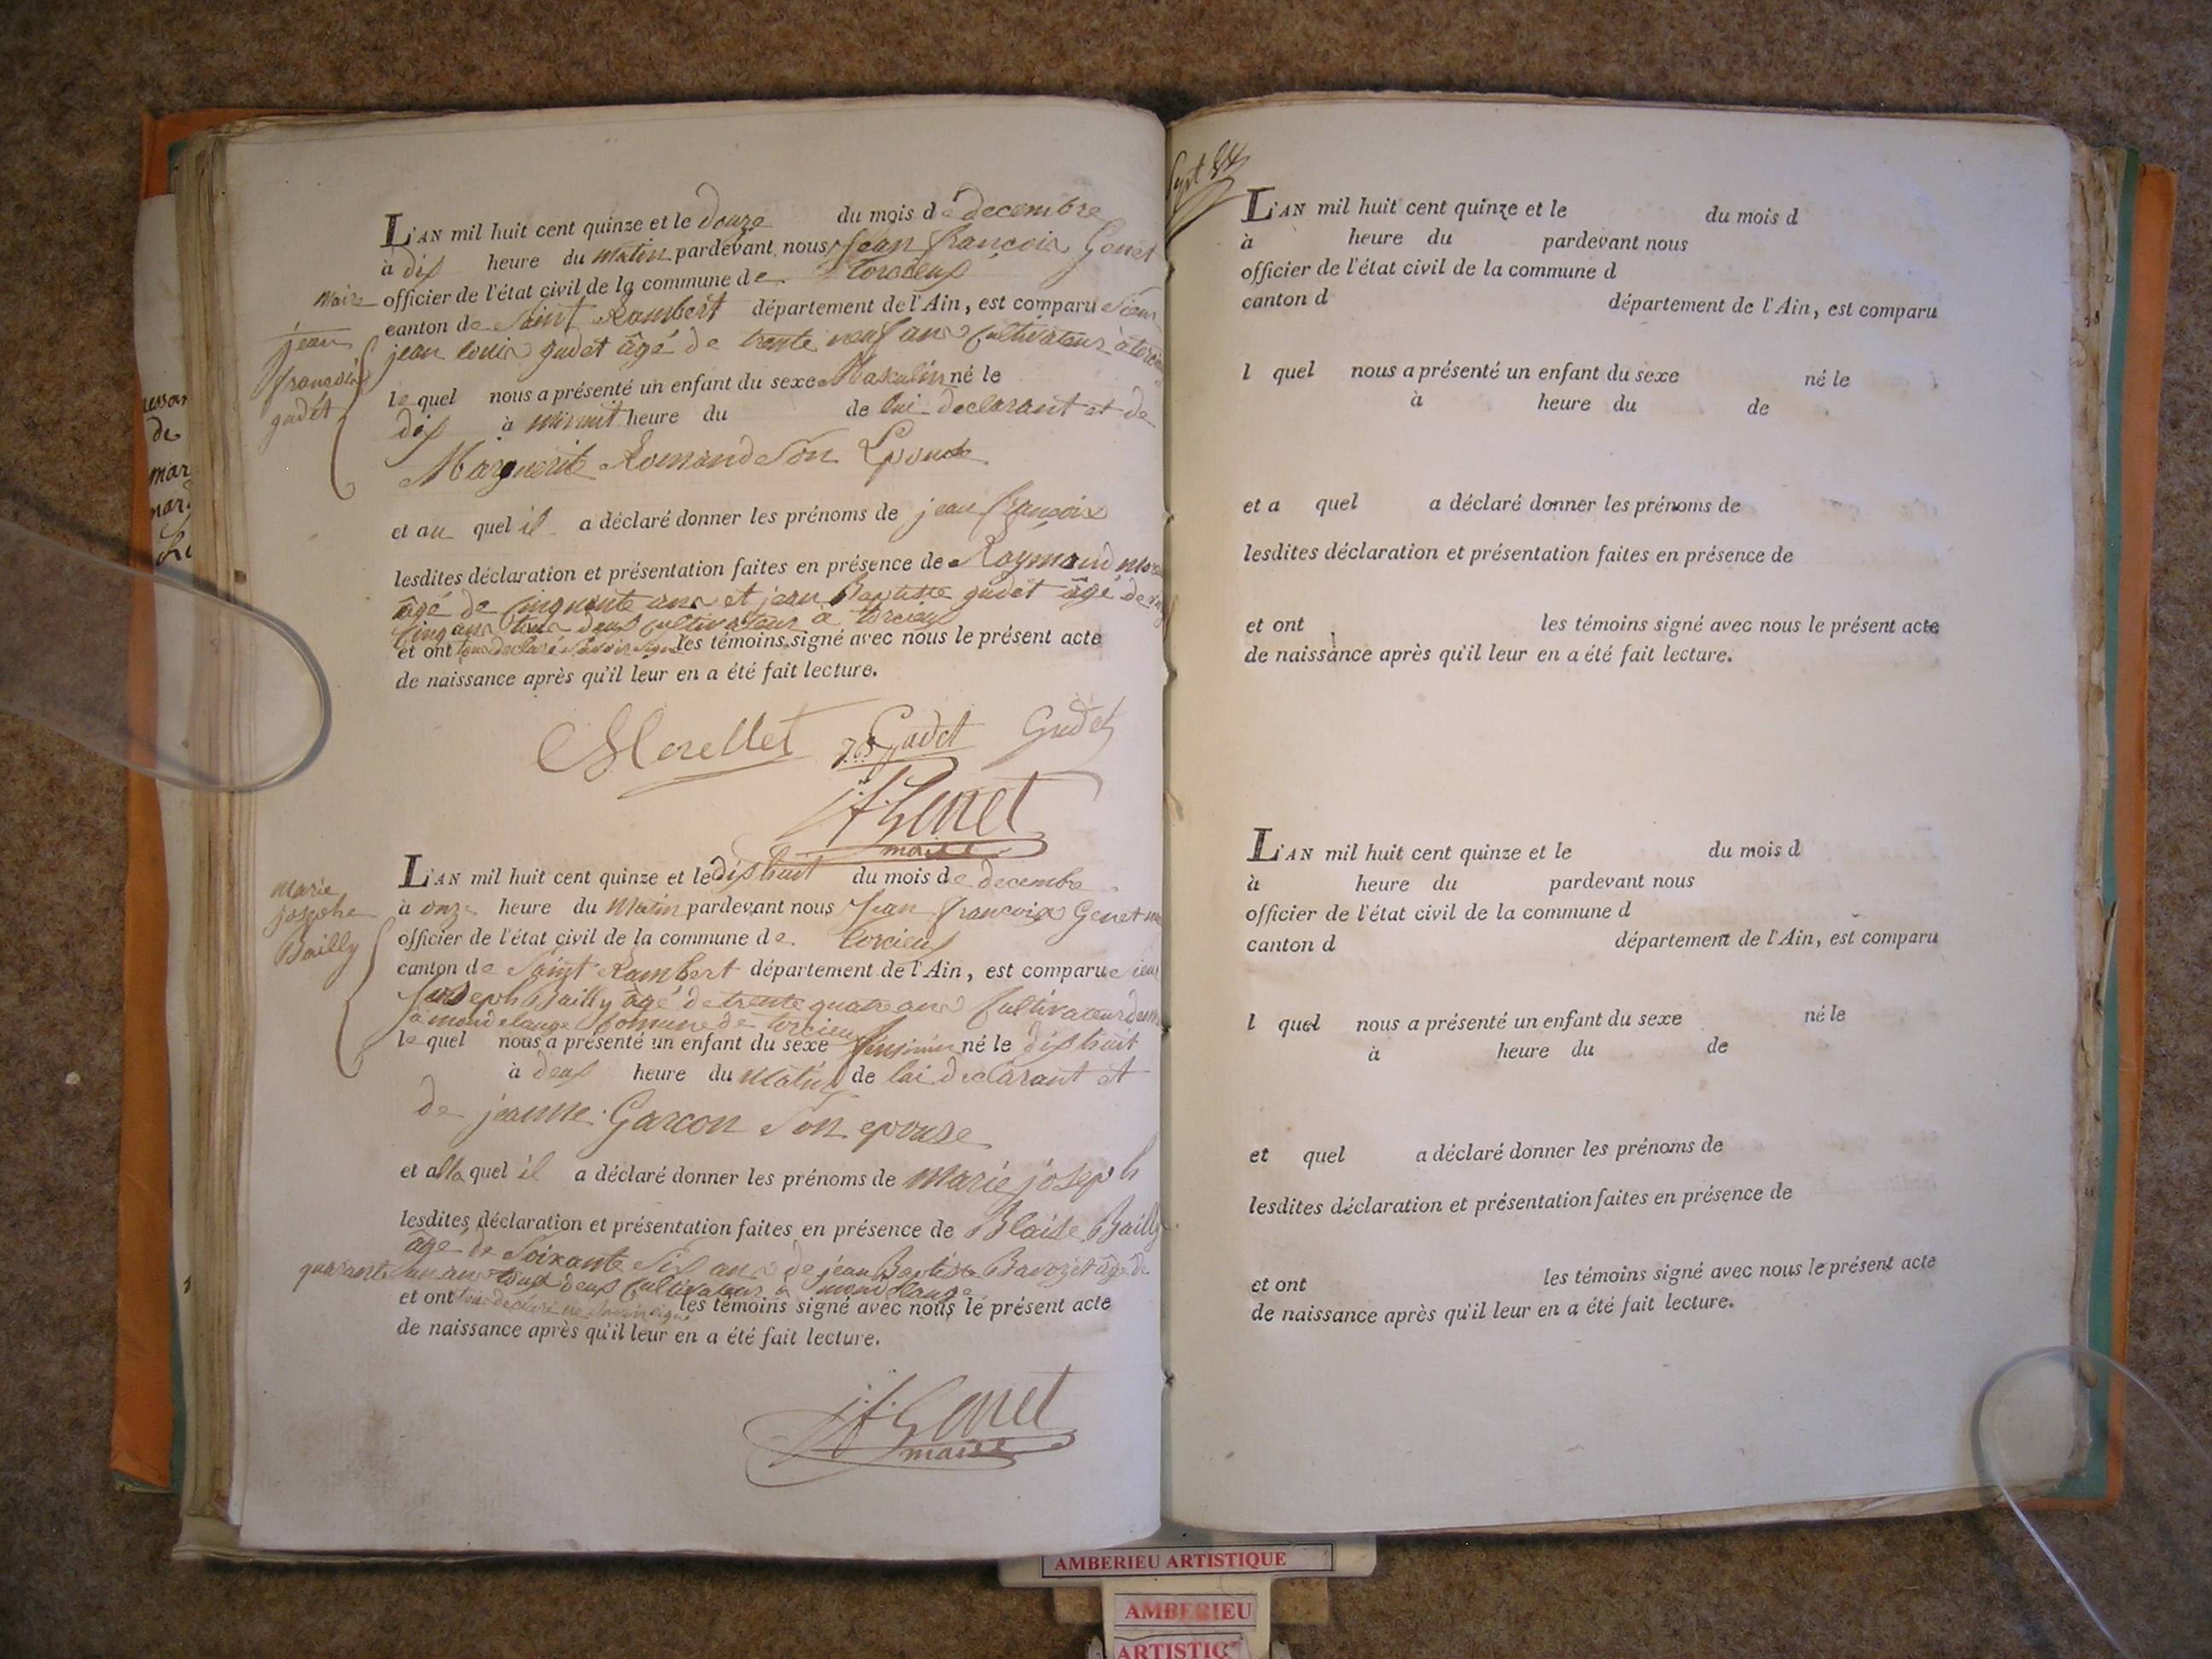 L'AN mil huit cent quinze et le douze du mois de decembre
à dix heure du matin pardevant nous jean francois Genet
maire officier de l'état civil de la commune de torcieux
canton de Saint Rambert département de l'Ain, est comparu Sieur
jean louis gudet âgé de trente neuf ans cultivateur à
jean
francois
gudet
le quel nous a présenté un enfant du sexe Maskulin né le
dix à minuit heure du de lui declarant et de
Marguerite Romand Son Epouse
et au quel il a déclaré donner les prénoms de jean francois
lesdites déclaration et présentation faites en présence de Raymond
âgé de cinquante ans et jean Baptiste gudet âgé de
cinq ans tous deux cultivateur à torcieux
et ont tous declaré Savoir Signé les témoins signé avec nous le présent acte
de naissance après qu'il leur en a été fait lecture.
Morellet Gudet Gudet
j. f. Genet
maire
L'AN mil huit cent quinze et le dix huit du mois de decembre
Marie
josephe
Bailly
à onze heure du Matin pardevant nous Jean francoix Genet
officier de l'état civil de la commune de torcieux
canton de Saint Rambert département de l'Ain, est comparu Sieur
Joseph Bailly âgé de trente quatre ans cultivateur
à mondelange Comune de torcieu
le quel nous a présenté un enfant du sexe né le dix huit
à deux heure du Matin de lui declarant et
de jeanne Garcon Son epouse
et alla quel il a déclaré donner les prénoms de Marie joseph
lesdites déclaration et présentation faites en présence de Blaise Bailly
âgé de Soixante Six ans de jean Baptiste Bavozet âgé de
quarante un ans tous deux cultivateur à mondelange
et ont tous declaré ne Savoir signé les témoins signé avec nous le présent acte
de naissance après qu'il leur en a été fait lecture.
j. f. Genet
maire
L'AN mil huit cent quinze et le du mois d
à heure du pardevant nous
officier de l'état civil de la commune d
canton d département de l'Ain, est comparu
l quel nous a présenté un enfant du sexe né le
à heure du de
et a quel a déclaré donner les prénoms de
lesdites déclaration et présentation faites en présence de
et ont les témoins signé avec nous le présent acte
de naissance après qu'il leur en a été fait lecture.
L'AN mil huit cent quinze et le du mois d
à heure du pardevant nous
officier de l'état civil de la commune d
canton d département de l'Ain, est comparu
l quel nous a présenté un enfant du sexe né le
à heure du de
et quel a déclaré donner les prénoms de
lesdites déclaration et présentation faites en présence de
et ont les témoins signé avec nous le présent acte
de naissance après qu'il leur en a été fait lecture.
AMBERIEU ARTISTIQUE
AMBERIEU
ARTISTIQ